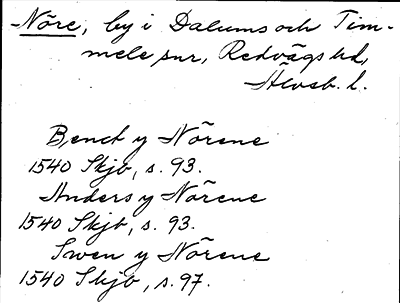 Nöre, by i Dalums och Tim-
mele snr, Redvägs hd,
Älvsb. l.
Bencht y Nörene
1540 Skjb, s. 93.
Anders y Nörene
1540 Skjb, s. 93.
Swen y Nörene
1540 Skjb, s. 97.